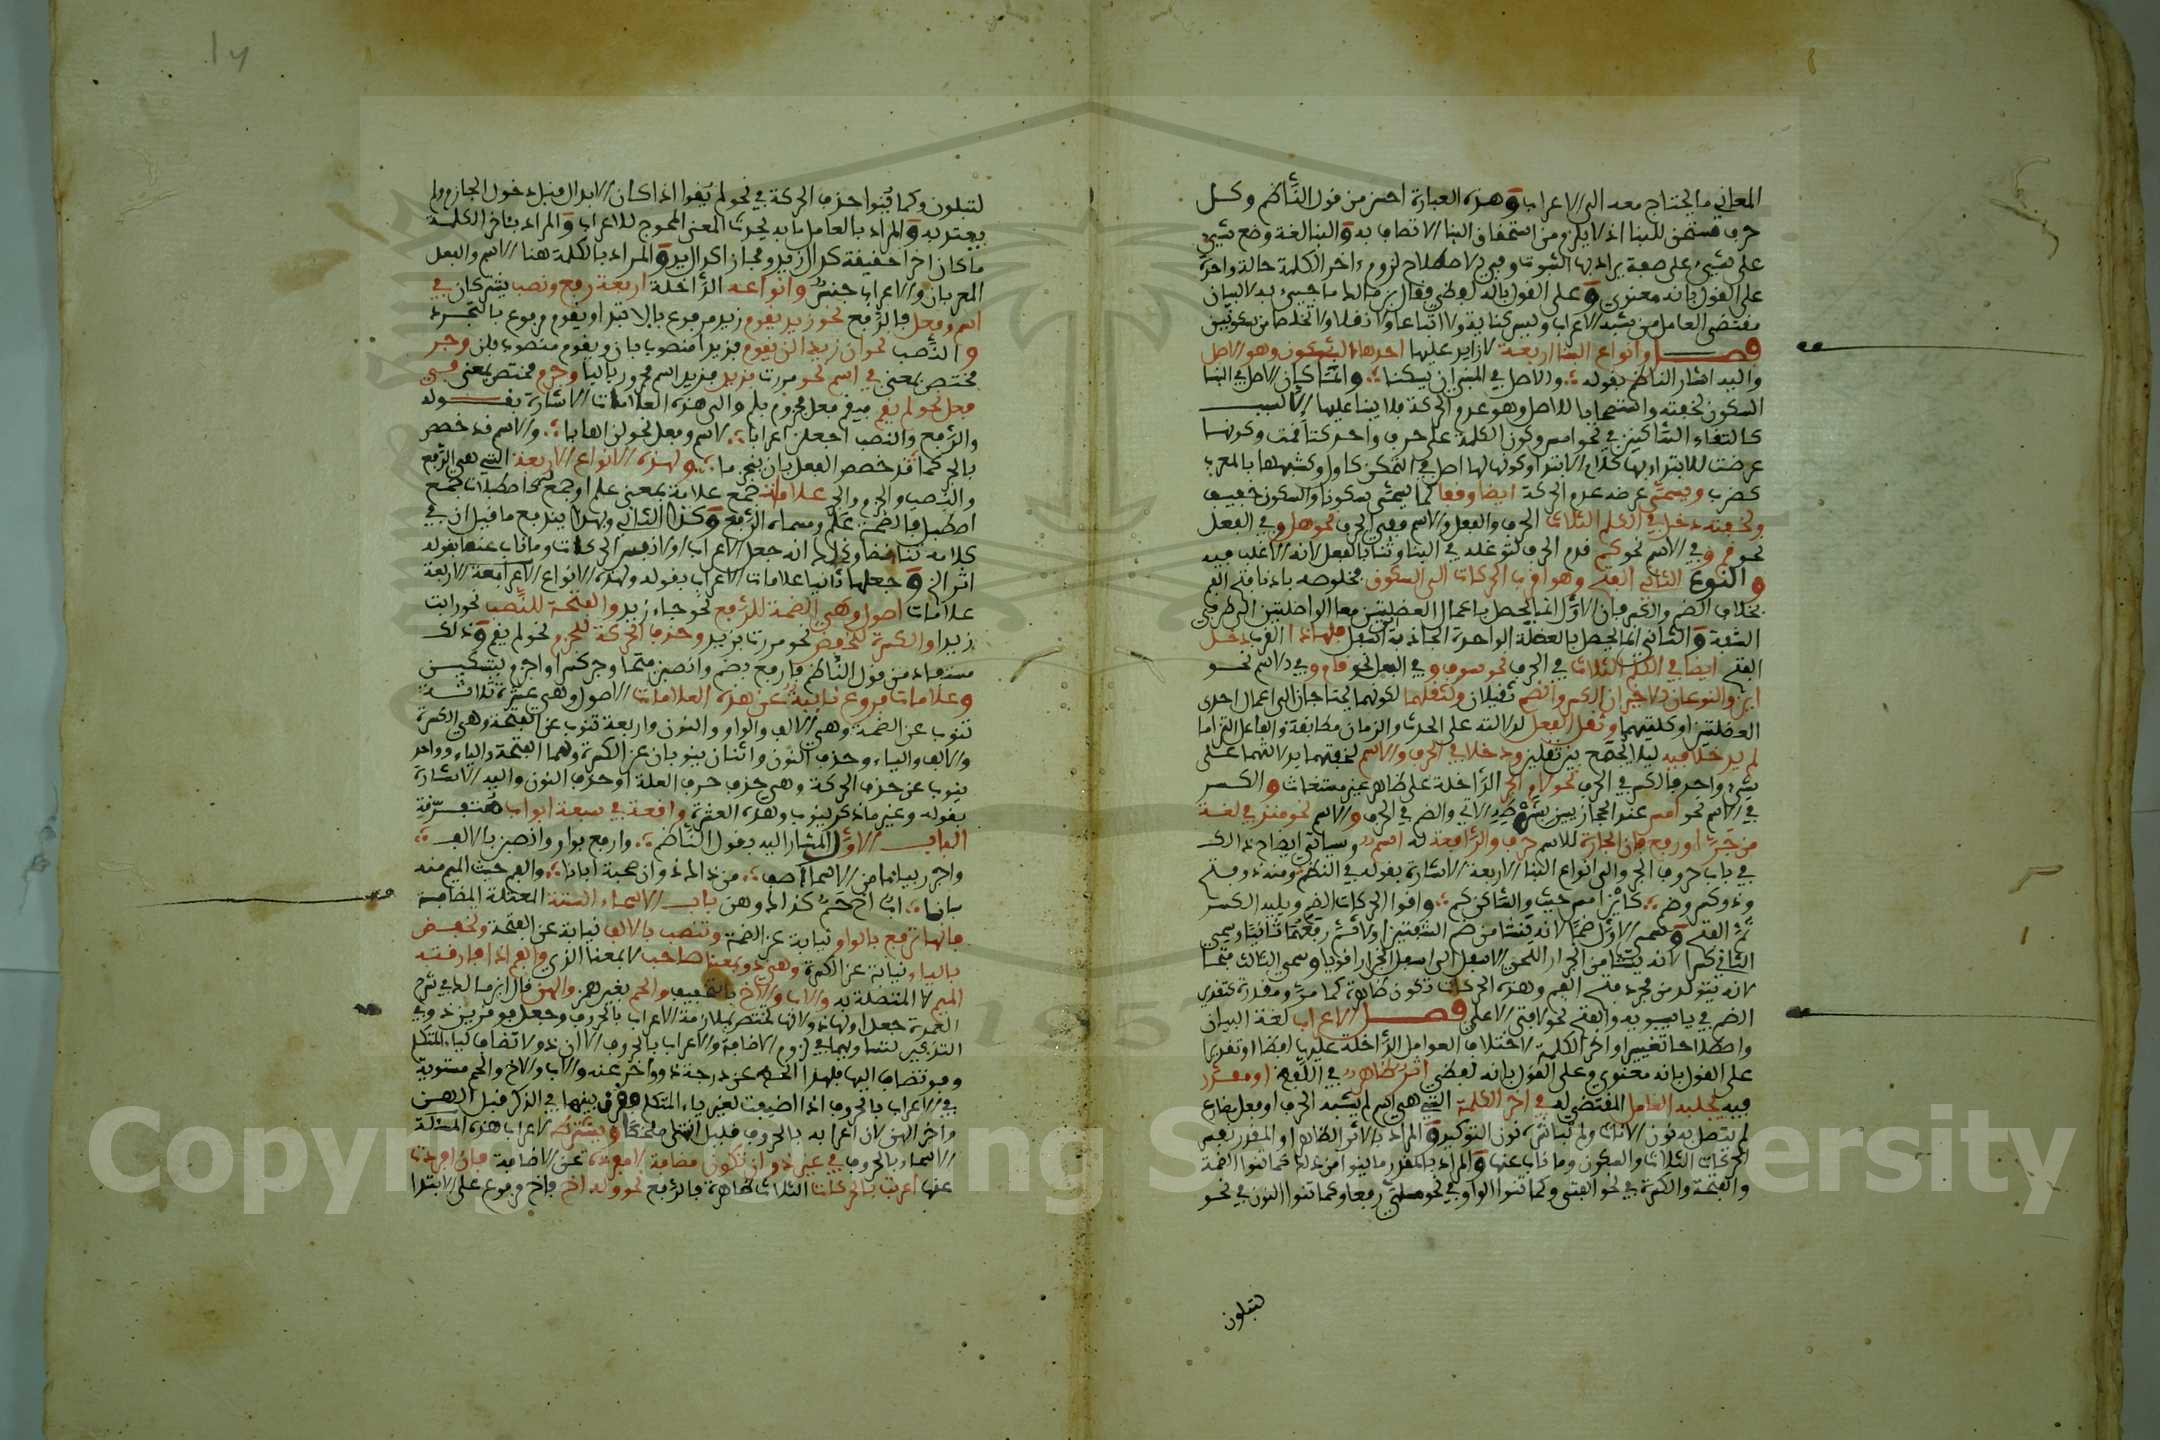 المعاني ما يحتاج معه الى الاعراب وهذه العبارة احسن من قول الناظم وكل
حرف مستحق للبنا اذ لا يلزم من استحقاق البنا الاتصاف به والبنا لغة وضع شيء
على شيء على صفة يراد بها الثبوت وفي الاصطلاح لزوم ءاخر الكلمة حالة واحدة
على القول بانه معنوي وعلى القول بانه لفظي فقال ابن مالك ما جيء به لا لبيان
مقتضى العامل من شبه الاعراب وليس حكاية ولا اتباعا ولا نقلا ولا تخلصا من سكونين
فصل وانواع البنا اربعة لا زايد عليها احدها السكون وهو الاصل
واليه اشار الناظم بقوله والاصل في المبني ان يسكنا وانما كان الاصل في البنا
السكون لخفته واستصحابا للاصل وهو عدم الحركة فلا يبنا عليها الا لسبب
كالتقاء الساكنين في نحو امس وكون الكلمة على حرف واحد كتا قمت وكونها
عرضة للابتدا بها كلام الابتدا وكونها لها اصل في التمكن كاول وكشبهها بالمعرب
كضرب ويسمى عرضه عدم الحركة ايضا وقفا كما يسمى سكونا والسكون خفيف
ولخفته دخل في الكلم الثلاث الحرف والفعل والاسم ففي الحرف نحو هل وفي الفعل
نحو قم وفي الاسم نحو كم قدم الحرف لتوغله في البنا وثنا بالفعل لانه الاغلب فيه
والنوع الثاني الفتح وهو اقرب الحركات الى السكون لحصوله بادنا فتح الفم
بخلاف الضم والكسر فان الاول انما يحصل باعمال العضلتين معا الواصلتين الى طرفي
الشفة والثاني انما يحصل بالعضلة الواحدة الجاذبة الى اسفل فلهذا القرب دخل
الفتح ايضا في الكلم الثلاث في الحرف نحو سوف وفي الفعل نحو قام وفي الاسم نحو
اين والنوعان الاخران الكسر والضم ثقيلان ولثقلهما لكونهما يحتاجان الى اعمال احدى
العضلتين او كلتيهما وثقل الفعل لدلالته على الحدث والزمان مطابقة والفاعل التزاما
لم يدخلا فيه ليلا يجتمع بين ثقلين ودخلا في الحرف والاسم لخفتهما بدلالتهما على
شيء واحد فالكسر في الحرف نحو لام الجر الداخلة على ظاهر غير مستغاث والكسر
في الاسم نحو امس عند الحجازيين بشرطه الاتي والضم في الحرف والاسم نحو منذ في لغة
من جر او رفع فان الجارة للاسم حرف والرافعة له اسم وسياتي ايضاح ذلك
في باب حروف الجر والى انواع البنا الاربعة الاشارة بقوله في النظم ومنه ذو فتح
وذو كسر وضم كاين امس حيث والساكن كم واقوا الحركات الضم ويليه الكسر
ثم الفتح وسمي الاول ضما لانه ينشا من ضم الشفتين اولا ثم رفعهما ثانيا وسمي
لانه يتولد من مجرد فتح الفم وهذه الحركات تكون ظاهرة كما مر ومقدرة كتقدير
الضم في يا سيبويه والفتح نحو لا فتى الاعلى فصل الاعراب لغة البيان
واصطلاحا تغيير اواخر الكلمة لاختلاف العوامل الداخلة عليها لفظا او تقديرا
على القول بانه معنوي وعلى القول بانه لفظي اثر ظاهر في اللفظ او مقدر
فيه يجلبه العامل المقتضي له في اخر الكلمة التي هي اسم لم يشبه الحرف او فعل مضارع
لم يتصل به نون الاناث ولم تباشره نون التوكيد والمراد بالاثر الظاهر او المقدر نفس
الحركات الثلاث والسكون وما ناب عنها والمراد بالمقدر ما ينوا من ذلك فكما تنوا الضمة
والفتحة والكسرة في نحو الفتى وكما تنوا الواو في نحو مسلمي رفعا وكما تنوا النون في نحو
لتبلون
لتبلون وكما ينوا حذف الحركة في نحو لم يقوا اذا كان الابدال قبل دخول الجازم ولم
يعتد به والمراد بالعامل ما به يحدث المعنى المحوج للاعراب والمراد بئاخر الكلمة
ما كان اخرا حقيقة كدال زيد ومجازا كدال يد والمراد بالكلمة هنا الاسم والفعل
المعربان والاعراب جنس وانواعه الداخلة اربعة رفع ونصب يشتركان في
اسم وفعل فالرفع نحو زيد يقوم زيد مرفوع بالابتدا ويقوم مرفوع بالتجرد
والنصب نحو ان زيدا لن يقوم فزيدا منصوب بان ويقوم منصوب بلن وجر
مختص بمعنى في اسم نحو مررت بزيد فزيد اسم مجرور بالبا وجزم مختص بمعنى في
فعل نحو لم يقم فيقم فعل مجزوم بلم والى هذه العلامات الاشارة بقوله
والرفع والنصب اجعلن اعرابا لاسم وفعل نحو لن اهابا والاسم قد خصص
بالجر كما قد خصص الفعل بان ينجزما ولهذه الانواع الاربعة التي هي الرفع
والنصب والجزم والجر علامات جمع علامة بمعنى علم او جمع كاصطبلات جمع
اصطبل فالضم علم ومسماه الرفع وكذا الثاني وبهذا يندفع ما قيل ان في
كلامه تناقضا وذلك انه جعل الاعراب اولا نفس الحركات وما ناب عنها بقوله
اثر الخ وجعلها ثانيا علامات الاعراب بقوله ولهذه الانواع الاربعة
علامات اصول وهي الضمة للرفع نحو جاء زيد والفتحة للنصب نحو رايت
زيدا والكسرة للخفض نحو مررت بزيد وحذف الحركة للجزم نحو لم يقم وذلك
مستفاد من قول الناظم فارفع بضم وانصبن فتحا وجر كسرا واجزم بتسكين
وعلامات فروع نايبة عن هذه العلامات الاصول وهي عشرة ثلاثة
تنوب عن الضمة وهي الالف والواو والنون واربعة تنوب عن الفتحة وهي الكسرة
والالف والياء وحذف النون واثنان ينوبان عن الكسرة وهما الفتحة والياء وواحد
ينوب عن حذف الحركة وهي حذف حرف العلة او حذف النون واليه الاشارة
بقوله وغير ما ذكر ينوب وهذه العشرة واقعة في سبعة ابواب متفرقة
الباب الاول المشار اليه بقول الناظم وارفع بواو وانصبن بالالف
واجرر بياء ما من الاسما اصف من ذاك ذو ان صحبة ابانا والفم حيث الميم منه
بانا اب اخ حم كذاك وهن باب الاسماء الستة المعتلة المضافة
فانها ترفع بالواو نيابة عن الضمة وتنصب بالالف نيابة عن الفتحة وتخفض
بالياء نيابة عن الكسرة وهي ذو بمعنا صاحب لا بمعنا الذي والفم اذا فارقته
الميم لا المتصلة به والاب والاخ بالتخفيف والحم بغير همز والهن قال ابن مالك في شرح
العمدة جعل اولها ذو لانها تختص بملازمة الاعراب بالحروف وجعل فو قرين ذو في
الذكر لتساويهما في لزوم الاضافة والاعراب بالحروف الا ان ذو لا تضاف لياء المتكلم
وفو تضاف اليها فلهذا انحط عن درجة ذو واخر عنه والاب والاخ والحم مستوية
في الاعراب بالحروف اذا اضيفت لغير ياء المتكلم فقرن بينها في الذكر قبل الهن
الاسماء بالحروف في غير ذو ان تكون مضافة لا مفردة عن الاضافة فان افردت
عنها اعربت بالحركات الثلاث ظاهرة فالرفع نحو وله اخ فاخ مرفوع على الابتدا